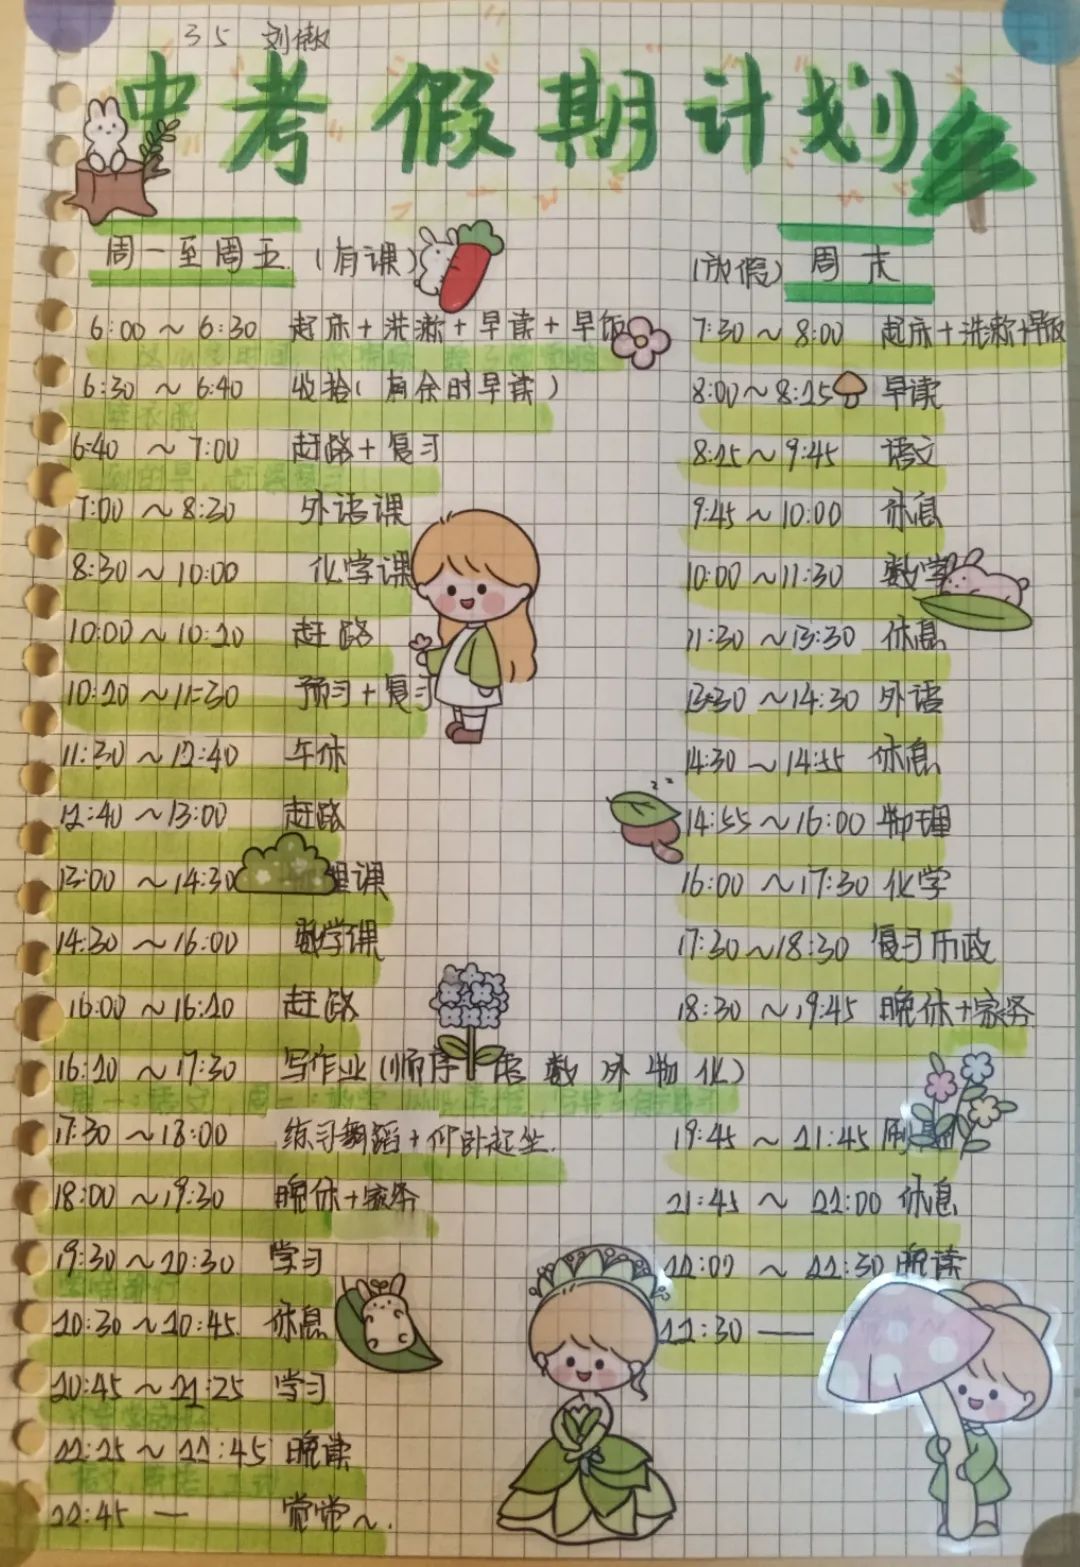 35 刘傲
中考假期计划
周一至周五（有课）
6:00～6:30 起床＋洗漱＋早读＋早饭
6:30～6:40 收拾（有余时早读）
6:40～7:00 赶路＋复习
7:00～8:30 外语课
8:30～10:00 化学课
10:00～10:20 赶路
10:20～11:30 预习＋复习
11:30～12:40 午休
12:40～13:00 赶路
13:00～14:30 理课
14:30～16:00 数学课
16:00～16:20 赶路
16:20～17:30 写作业（顺序 语 数 外 物 化）
17:30～18:00 练习舞蹈＋仰卧起坐.
18:00～19:30 晚休＋家务
19:30～20:30 学习
20:30～20:45 休息
20:45～21:25 学习
22:25～22:45 晚读
22:45— 觉觉～.
（放假）周末
7:30～8:00 起床＋洗漱＋早饭
8:00～8:25 早读
8:25～9:45 语文
9:45～10:00 休息
10:00～11:30 数学
11:30～13:30 休息
13:30～14:30 外语
14:30～14:55 休息
14:55～16:00 物理
16:00～17:30 化学
17:30～18:30 复习历政
18:30～19:45 晚休＋家务
19:45～21:45 刷
21:45～22:00 休息
22:00～22:30 晚读
22:30——